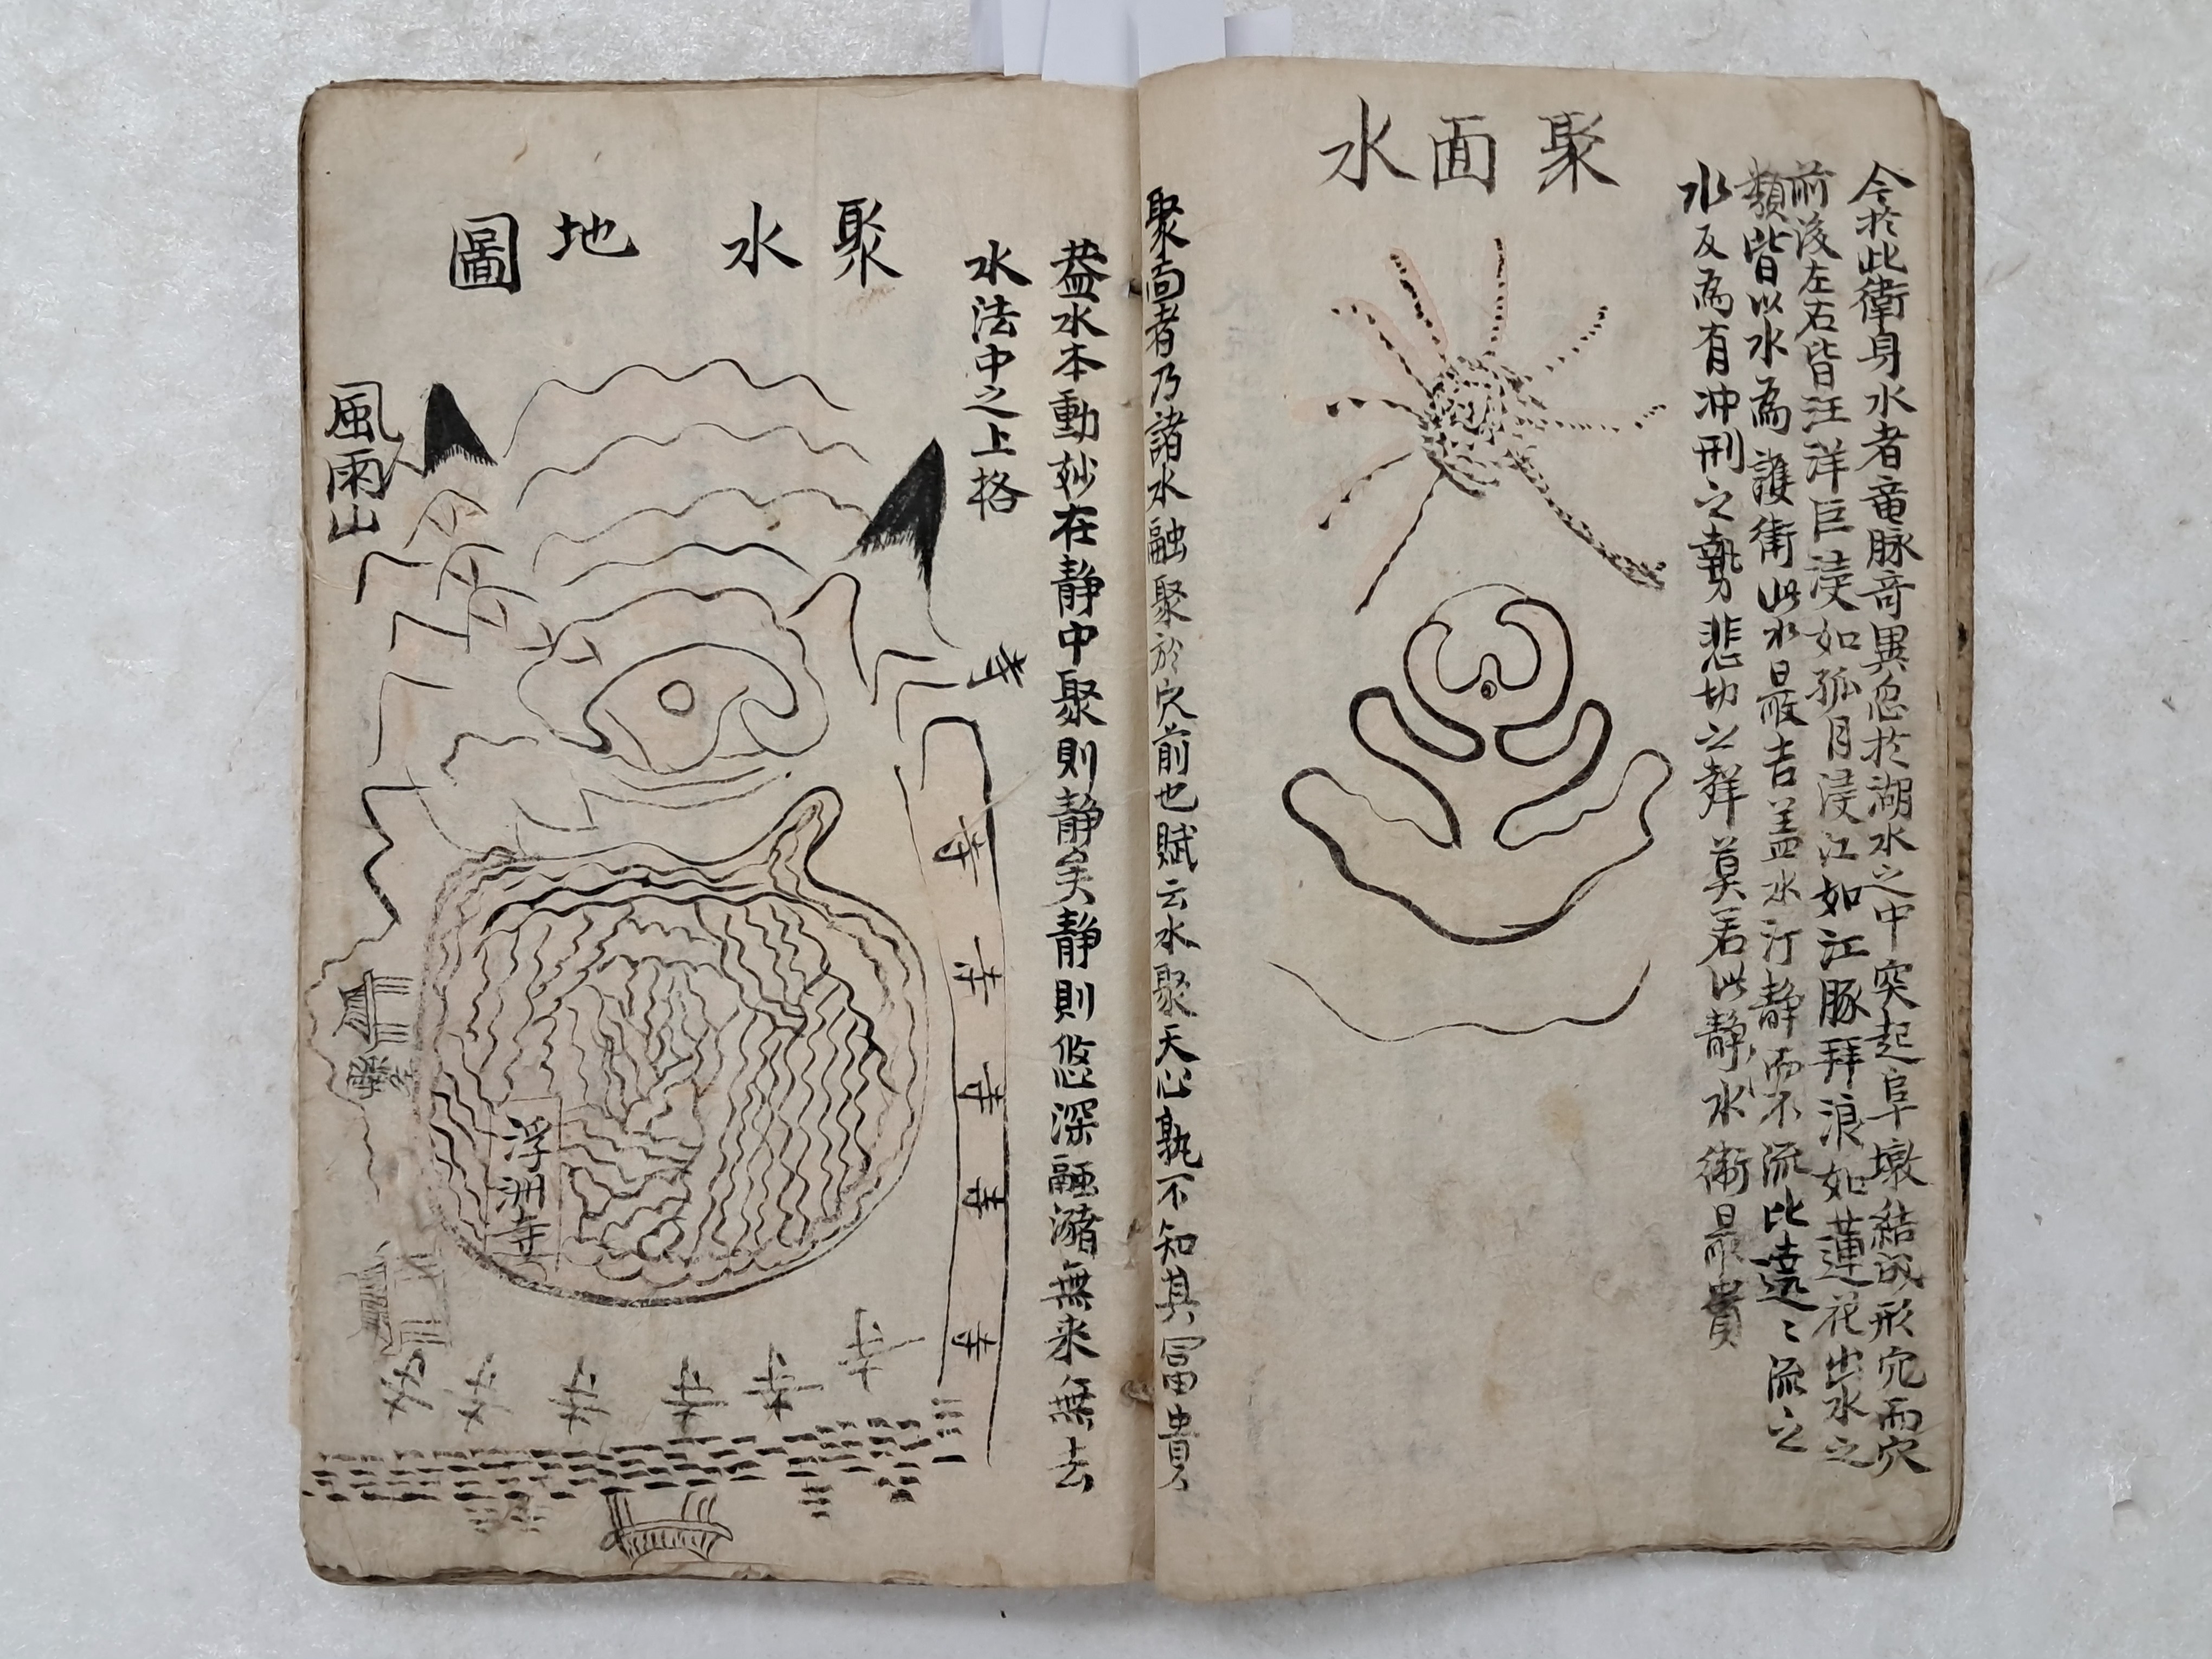 今於此衛身水者竜脉奇異忽於湖水之中突起阜墩結成形穴而穴
前後左右皆汪洋巨浸如孤月浸江如江豚拜浪如蓮花出水之
類皆以水為護衛此水最吉盖水汀静而不流比遶〻流之
水反為有冲刑之勢悲切之聲莫若此静水衛最貴
聚面水
聚面者乃諸水融聚於穴前也賦云水聚天心孰不知其冨貴
盖水本動妙在静中聚則静矣静則悠深融瀦無来無去
水法中之上格
聚水地圖
風雨山
浮洲寺